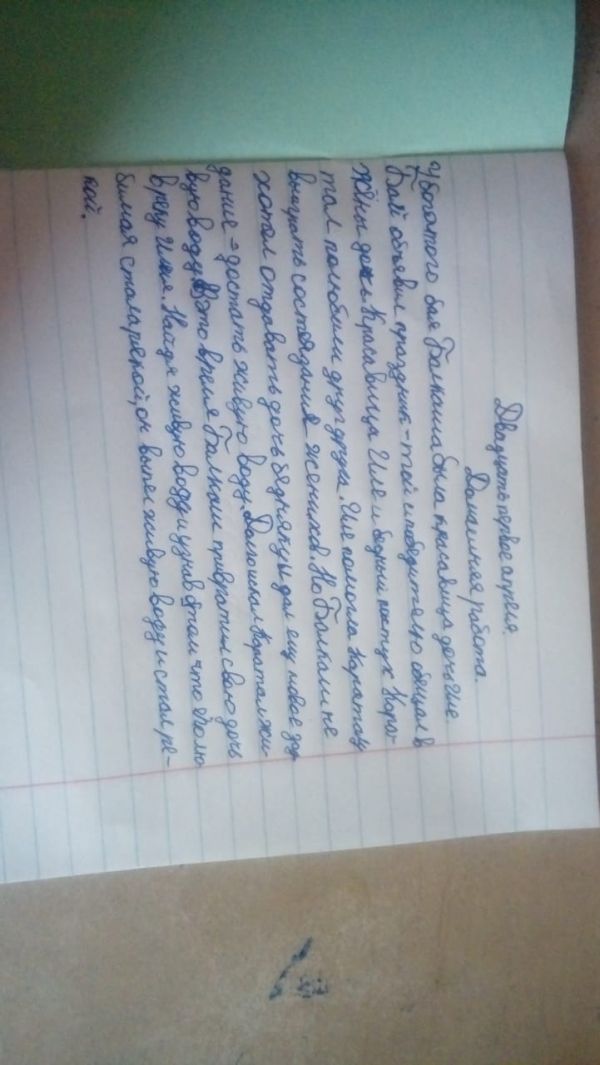 Двадцать первое апреля.
Домашняя работа.
У богатого бая Балхаша была красавица дочь Иле.
Бай объявил праздник-той и победителю обещал в
жёны дочь. Красавица Иле и бедный пастух Кара-
тал полюбили друг друга. Иле помогла Караталу
выиграть состязания женихов. Но Балхаш не
хотел отдавать дочь бедняку и дал ему новое за-
дание - достать живую воду. Долго искал Каратал жи-
вую воду. В это время Балхаш превратил свою дочь
в реку Или. Найдя живую воду и узнав о том что его лю-
бимая стала рекой, он выпил живую воду и стал ре-
кой.